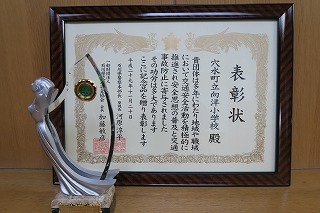 表彰状
穴水町立向洋小学校 殿
貴団体は多年にわたり地域や職域
において交通安全活動を積極的に
推進され安全思想の普及と交通
事故防止に寄与されました
その功労は多大であります
ここに記念品を贈り表彰します
平成二十九年十二月二十日
石川県警察本部長
河原淳平
加藤敏彦